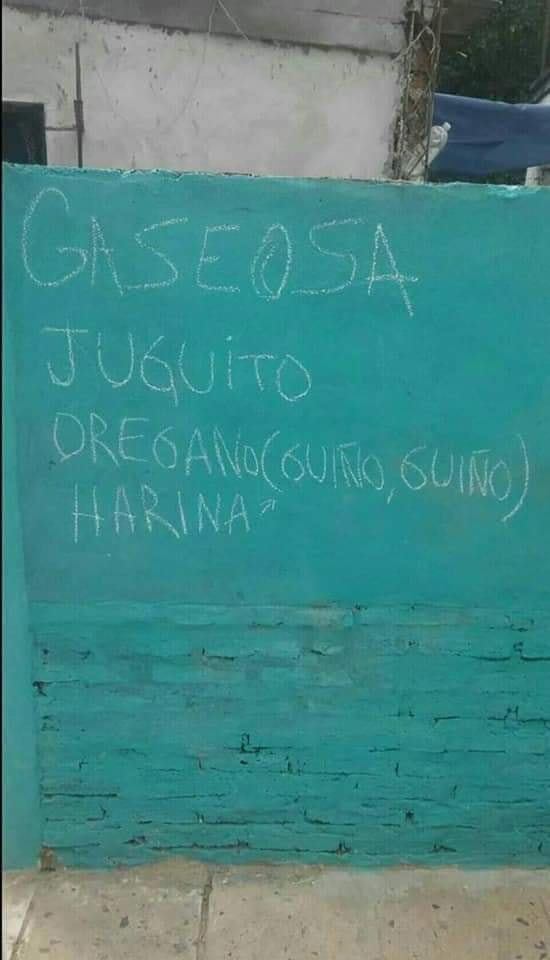 GASEOSA
JUGUiTO
OREGANO (GUIÑO, GUIÑO)
HARINA "